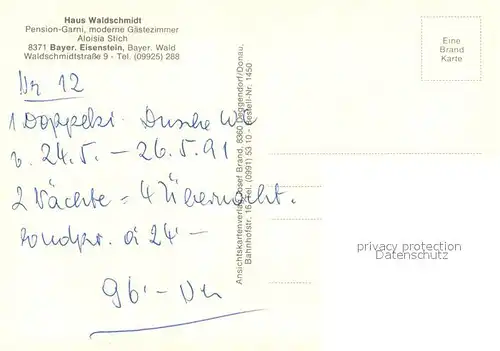 Haus Waldschmidt
Pension-Garni, moderne Gästezimmer
Aloisia Stich
8371 Bayer. Eisenstein, Bayer. Wald
Waldschmidtstraße 9 - Tel. (09925) 288
Eine
Brand
Karte
Nr 12
1 Doppelzi. Dusche WC
v. 24.5. – 26.5.91
2 Nächte = 4 Übernacht.
à 24.–
96.–
Ansichtskartenverlag Josef Brand, 8360 Deggendorf/Donau,
Bahnhofstr. 16, Tel. (0991) 53 10 - Bestell-Nr. 1450
privacy protection
Datenschutz